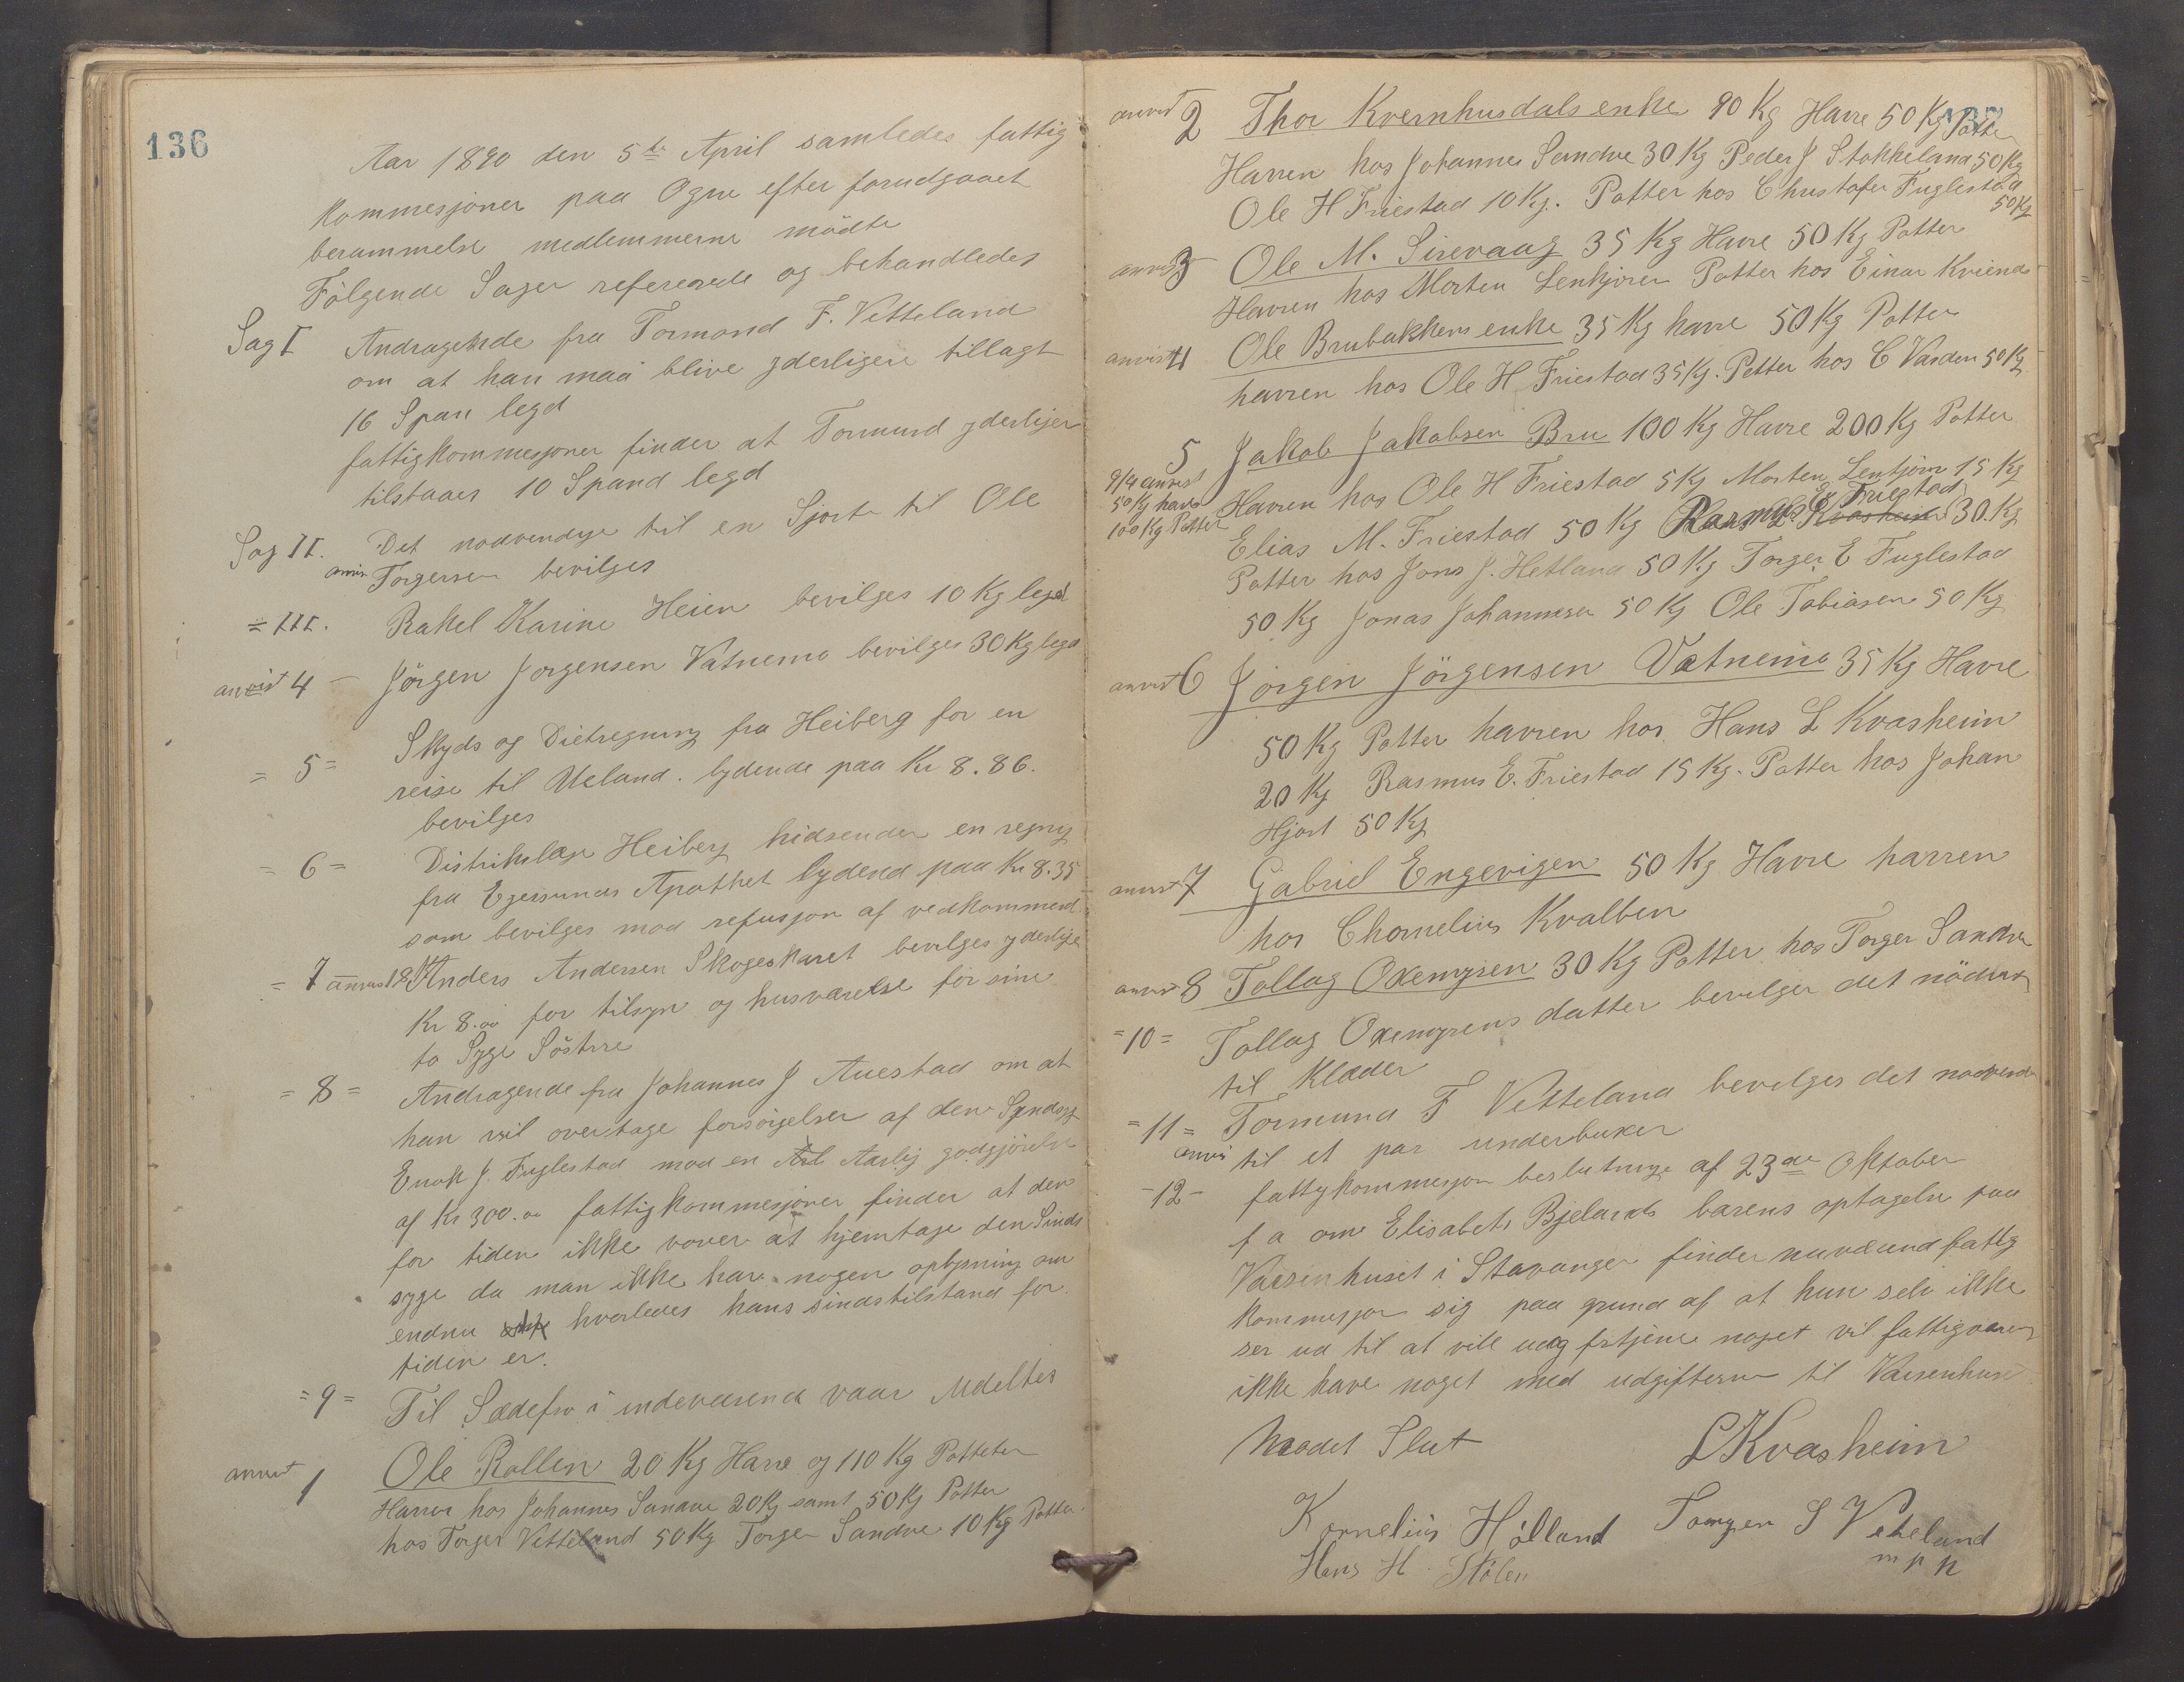 136
Aar 1890 den 5te April samledes fattig
kommesjonen paa Ogne efter forudgaaet
berammelse medlemmerne mödte
Fölgende Sager refererede og behandledes
Sag I Andragende fra Tormond F. Vetteland
om at han maa blive yderligere tillagt
16 Span legd
fattigkommesjonen finder at Tormund yderliger
tilstaaes 10 Spand legd
Sag II. Det nodvendige til en Sjorte til Ole
anvis Torgersen bevilges
= III. Rakel Karine Heien bevilges 10 Kg legd
anvist 4 - Jörgen Jorgensen Vatnemo bevilges 30 Kg legd
= 5 = Skyds og Dietregning fra Heiberg for en
reise til Ueland. lydende paa Kr 8.86.
bevilges
= 6 = Distriktslæge Heiberg hidsender en regning
fra Egersunds Apothek lydend paa Kr 8.35
som bevilges mod refusjon af vedkommend
= 7 anvist Anders Andersen Skogeskaret bevilges yderlige
Kr 8.00 for tilsyn og husværelse for sine
to Syge Söstre
= 8 = Andragende fra Johannes J Auestad om at
han vil overtage forsörgelsen af den Sindssyge
Enok J. Fuglestad mod en Aarlig godtgjörelse
af Kr 300.00 fattigkommesjonen finder at den
for tiden ikke vover at hjemtage den Sinds
syge da man ikke har nogen oplysning om
endnu hvorledes hans sindstilstand for
tiden er.
= 9 = Til Sædefro i indeværende vaar Udeltes
anvist 1 Ole Rollin 20 Kg Havre og 110 Kg Potteter
Havren hos Johannes Sandve 20 Kg samt 50 Kg Potter
hos Torger Vetteland 50 Kg Torger Sandve 10 Kg Potter.
137
anvist 2 Thor Kvernhusdals enke 90 Kg Havre 50 Kg Potter
Havren hos Johannes Sandve 30 Kg Peder J Stokkeland 50 Kg
Ole H Friestad 10 Kg. Potter hos Christofer Fuglestad
50 Kg
anvist 3 Ole M. Sirevaag 35 Kg Havre 50 Kg Potter
Havren hos Morten Lentjörn Potter hos Einar Kvienes
anvist 4 Ole Brubakkens enke 35 Kg havre 50 Kg Potter
havren hos Ole H Friestad 35 Kg. Potter hos C Varden 50 Kg
5 Jakob Jakobsen Bru 100 Kg Havre 200 Kg Potter
9/4 anvist
50 Kg havre
100 Kg Potter
Havren hos Ole H Friestad 5 Kg Morten Lentjörn 15 Kg
Elias M. Friestad 50 Kg Rasmus E Friestad 30. Kg
Potter hos Jons J. Hetland 50 Kg Torger E Fuglestad
50 Kg Jonas Johannesen 50 Kg Ole Tobiasen 50 Kg
anvist 6 Jörgen Jörgensen Vatnemo 35 Kg Havre
50 Kg Potter havren hos Hans L Kvasheim
20 Kg Rasmus E. Friestad 15 Kg. Potter hos Johan
Hjort 50 Kg
anvist 7 Gabriel Engevigen 50 Kg Havre havren
hos Chornelius Kvalben
anvist 8 Tollag Oxemyren 30 Kg Potter hos Torger Sandve
= 10 = Tollag Oxemyrens datter bevilges det nödvendige
til Klæder
= 11 = Tormund F Vetteland bevilges det nodvendige
anvis til et par underbuxer
- 12 - fattigkommesjon beslutning af 23de Oktober
f a om Elisabets Bjelands barens optagelse paa
Vaisenhuset i Stavanger finder nuværend fattig
kommesjon sig paa grund af at hun selv ikke
ser ud til at vill udg fortjene noget vil fattigvæsen
ikke have noget med udgifterne til Vaisenhuset
Modet Slut
L Kvasheim
Kornelius Hölland Torger S Veteland
m p p
Hans H Stölen